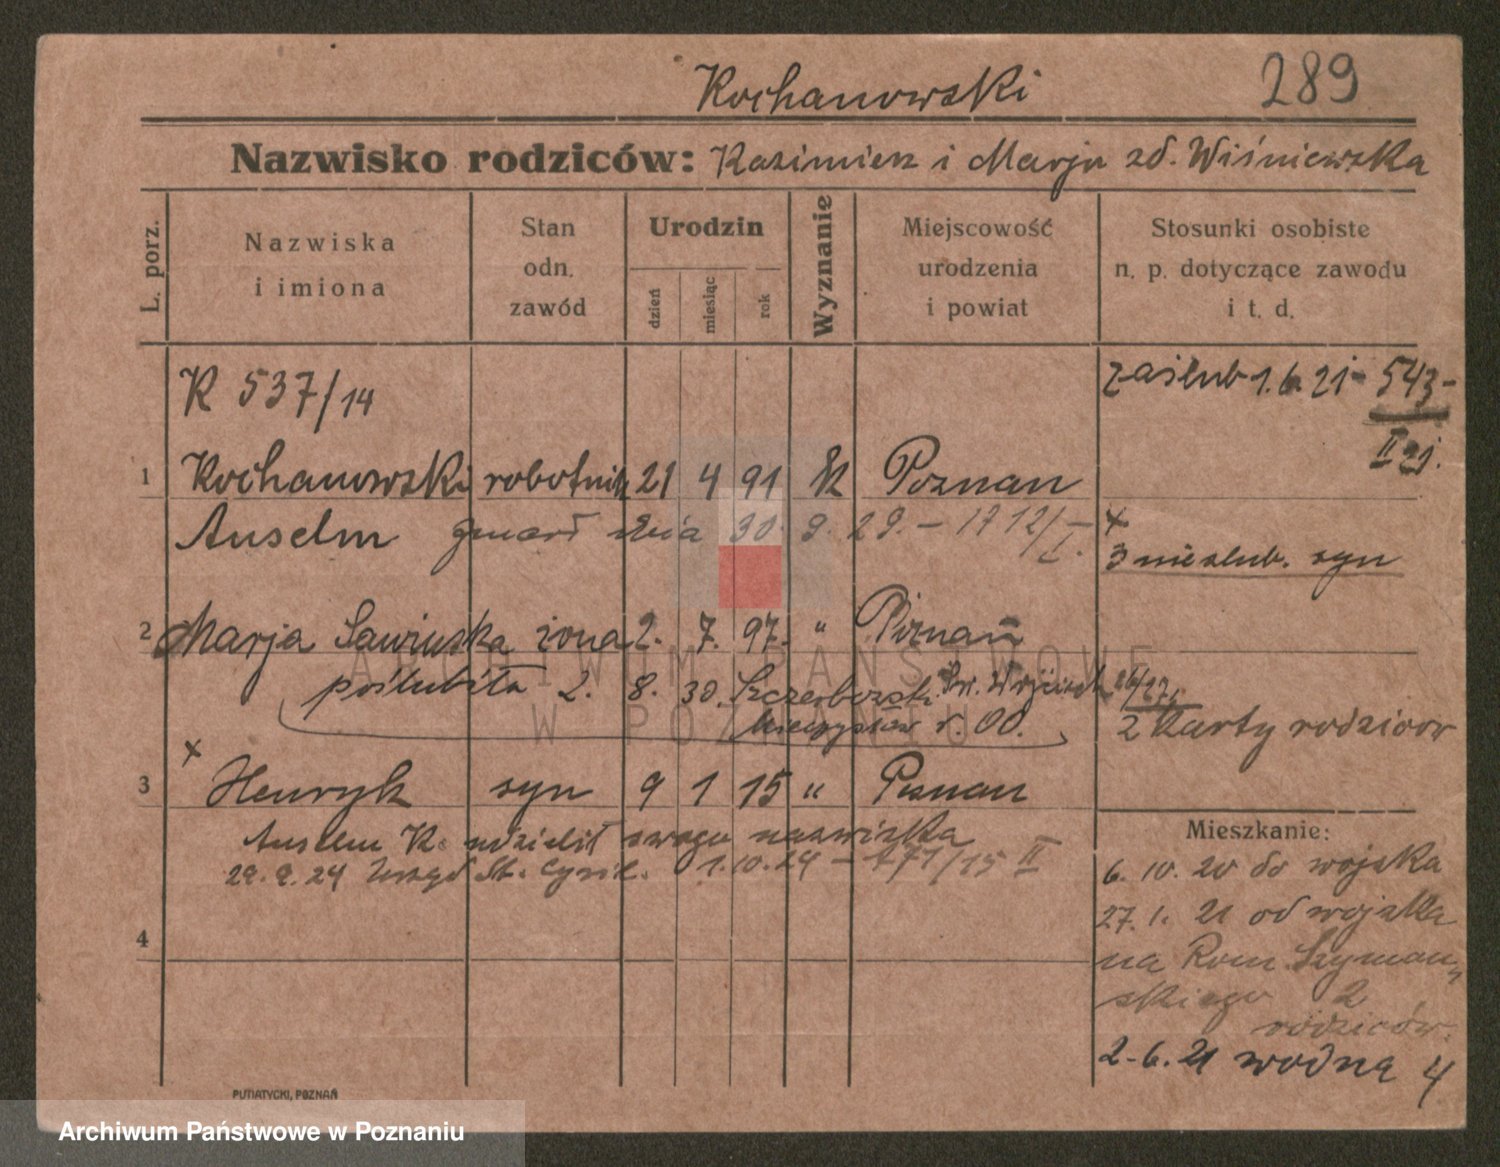 Kochanowski 289
Nazwisko rodziców: Kazimierz i Marja zd. Wiśniewska
L. porz.
Nazwiska
i imiona
Stan
odn.
zawód
Urodzin
dzień
miesiąc
rok
Wyznanie
Miejscowość
urodzenia
i powiat
Stosunki osobiste
n. p. dotyczące zawodu
i t. d.
K 537/14
zaślub 1.6.21 - 543 -
II 21.
1 Kochanowski robotnik 21 4 91 k Poznan
Anselm zmarł dnia 30. 9. 29. - 1712/I.
x
3 nieslub. syn
2 Marja Sawinska żona 2. 7. 97. " Poznań
poślubiła 2. 8. 30. Szczerborski Św. Wojciech
Mieczysław r. 00.
2 Karty rodzicow
x
3 Henryk syn 9 1 15 " Poznan
Anselm K. udzielił swego nazwiska
29. 9. 24 Urząd St. 1.10.24 - 771/15 II
4
Mieszkanie:
6. 10. 20 do wojska
27. 1. 21 od wojska
na Rom. Szyman-
skiego 2
rodziców.
2-6.21 wodna 4
PUTIATYCKI, POZNAŃ
ARCHIWUM PAŃSTWOWE
W POZNANIU
Archiwum Państwowe w Poznaniu